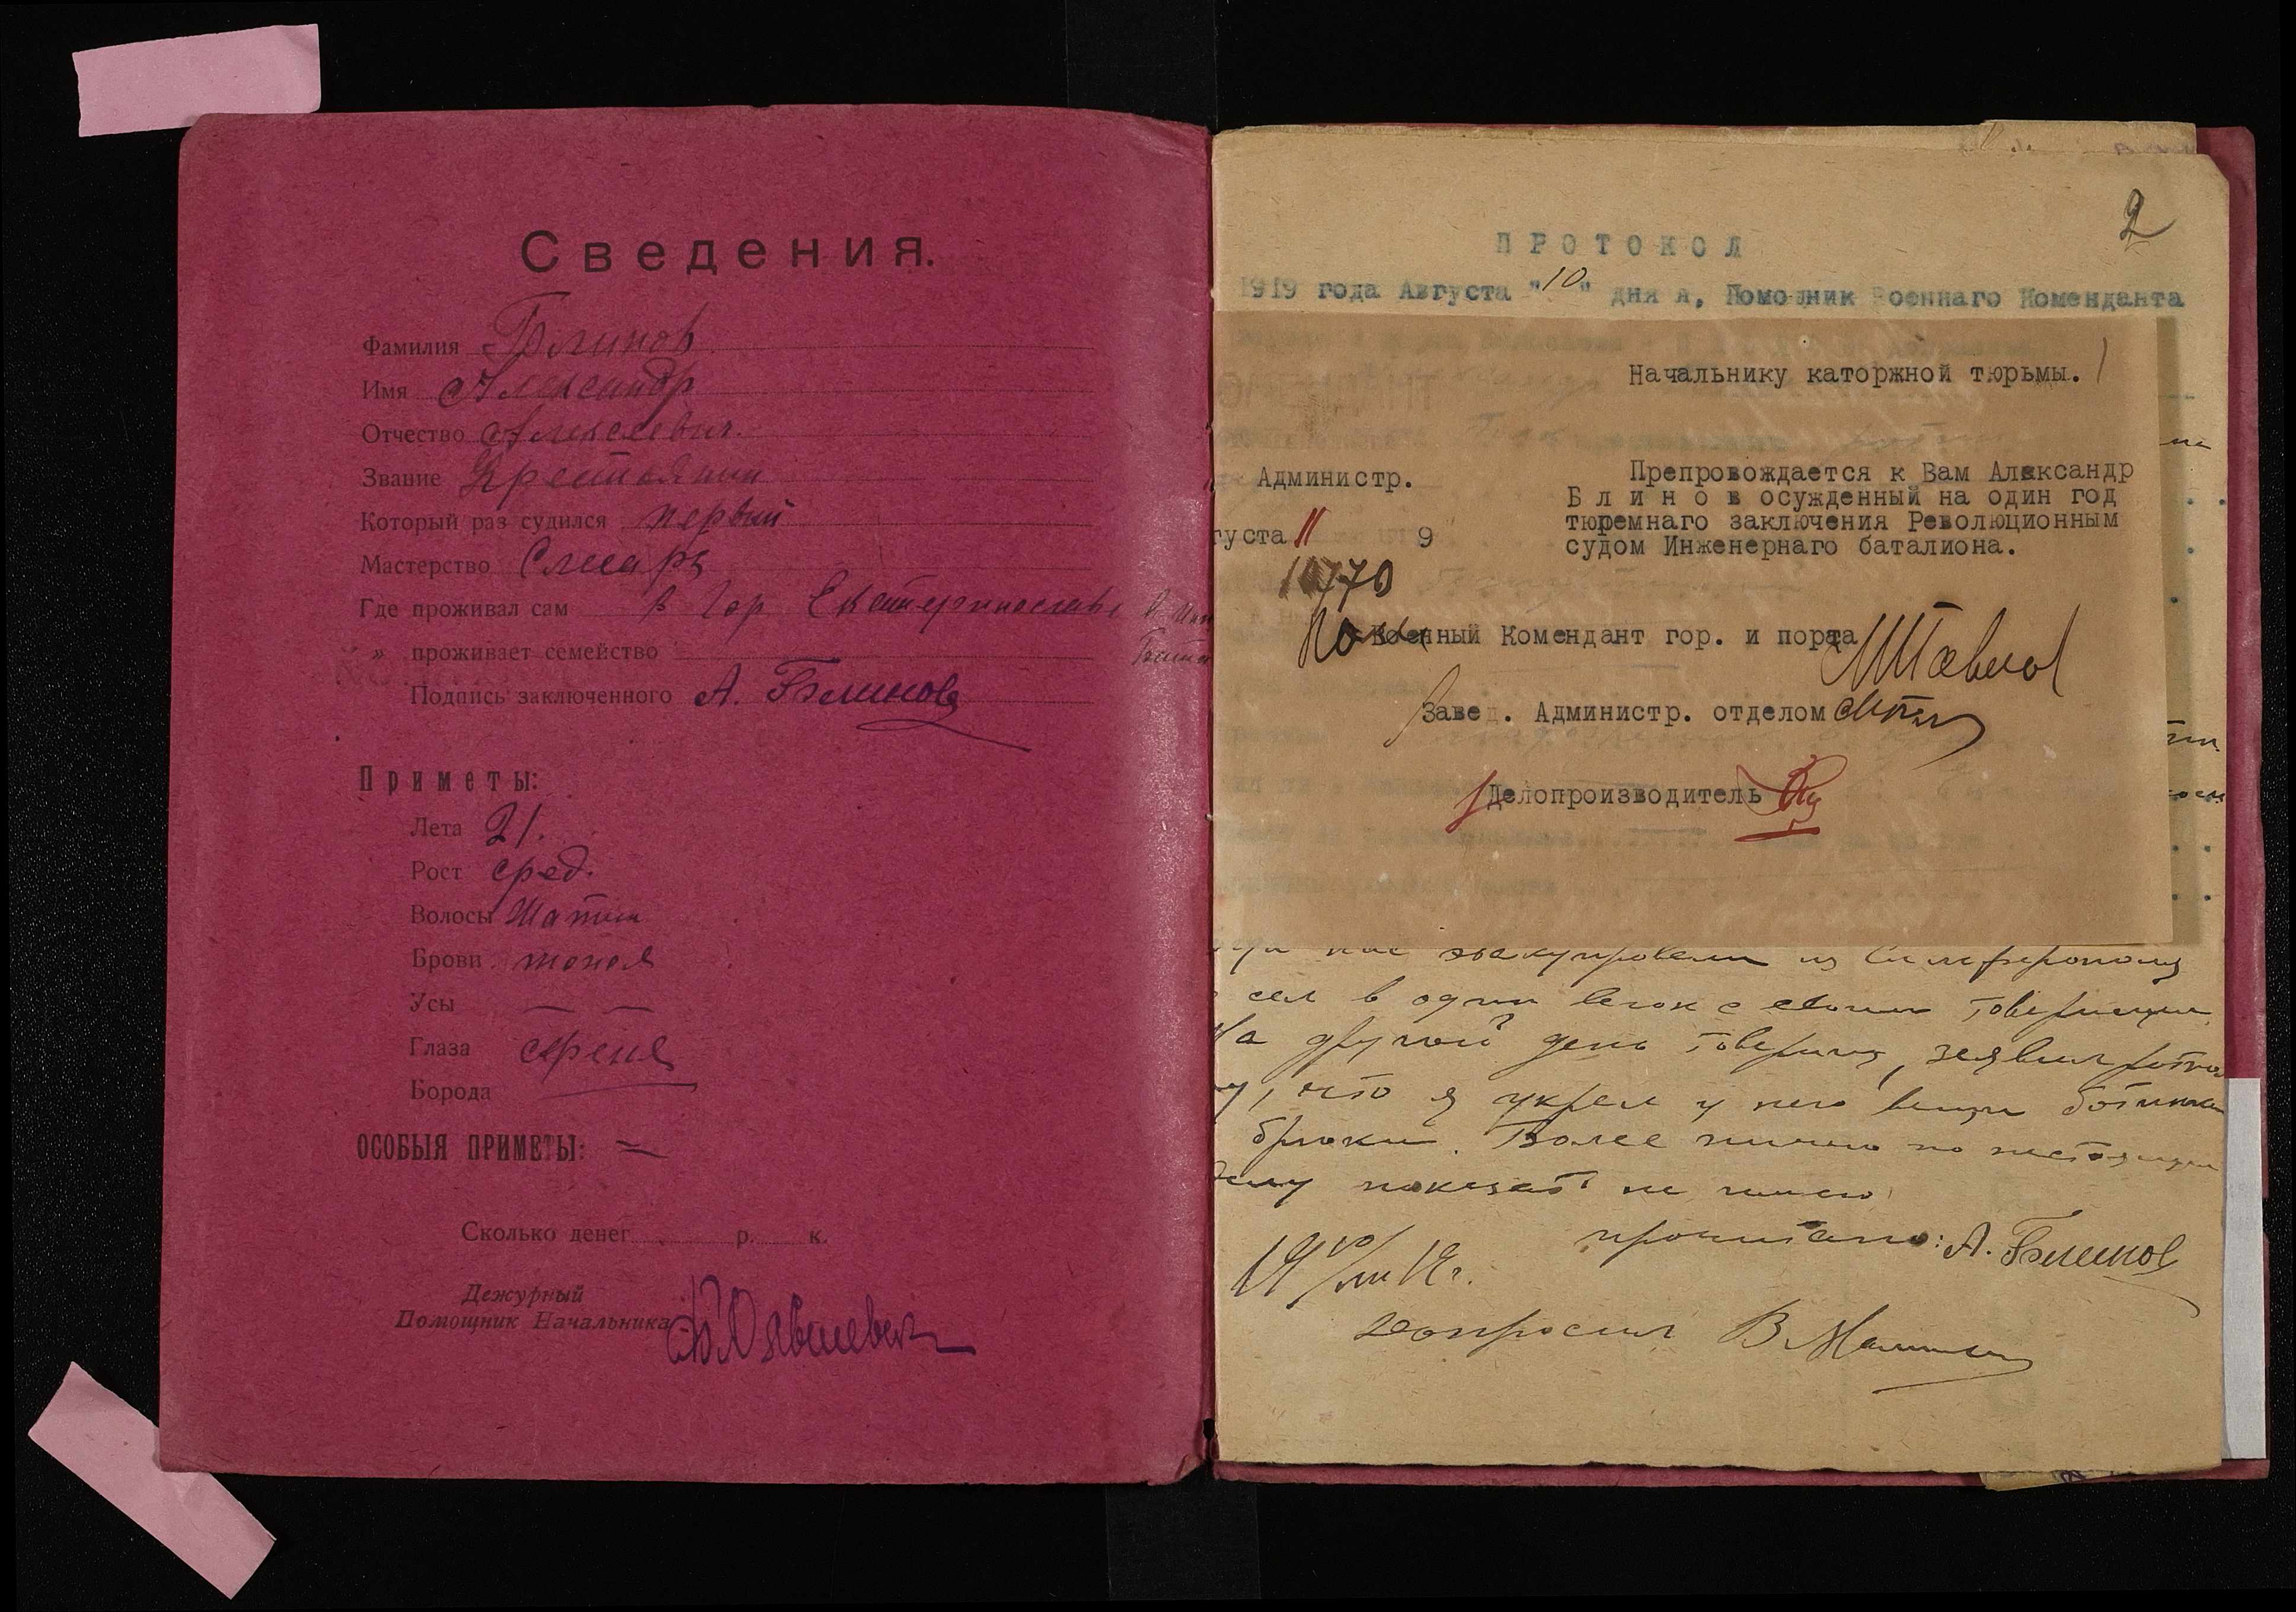 Сведения.
Фамилия Блинов
Имя Александр
Отчество Алексеевич.
Звание Крестьянин
Который раз судился первый
Мастерство Слесарь
Где проживал сам в гор Екатеринославе
» проживает семейство
Подпись заключенного А. Блинов
Приметы:
Лета 21.
Рост сред.
Волосы Шатин
Брови тоноя
Усы — —
Глаза серыя
Борода
ОСОБЫЯ ПРИМЕТЫ: —
Сколько денег р. к.
Дежурный
Помощник Начальника
2
ПРОТОКОЛ
1919 года Августа "10" дня я, Помощник Военнаго Коменданта
Начальнику каторжной тюрьмы.
Администр.
Препровождается к Вам Александр
Блинов осужденный на один год
тюремнаго заключения Революционным
судом Инженернаго баталиона.
густа 11 9
Военный Комендант гор. и порта
Завед. Администр. отделом
Делопроизводитель
нас эвакуировали из Симферополя
сел в один вагон с своим товарищем
На другой день товарищ, заявил ротно
му, что я украл у него вещи ботинки
брюки. Более ничего по настоящему
делу показать не имею
прочитано: А. Блинов
19 10/VIII 19г.
допросил В.